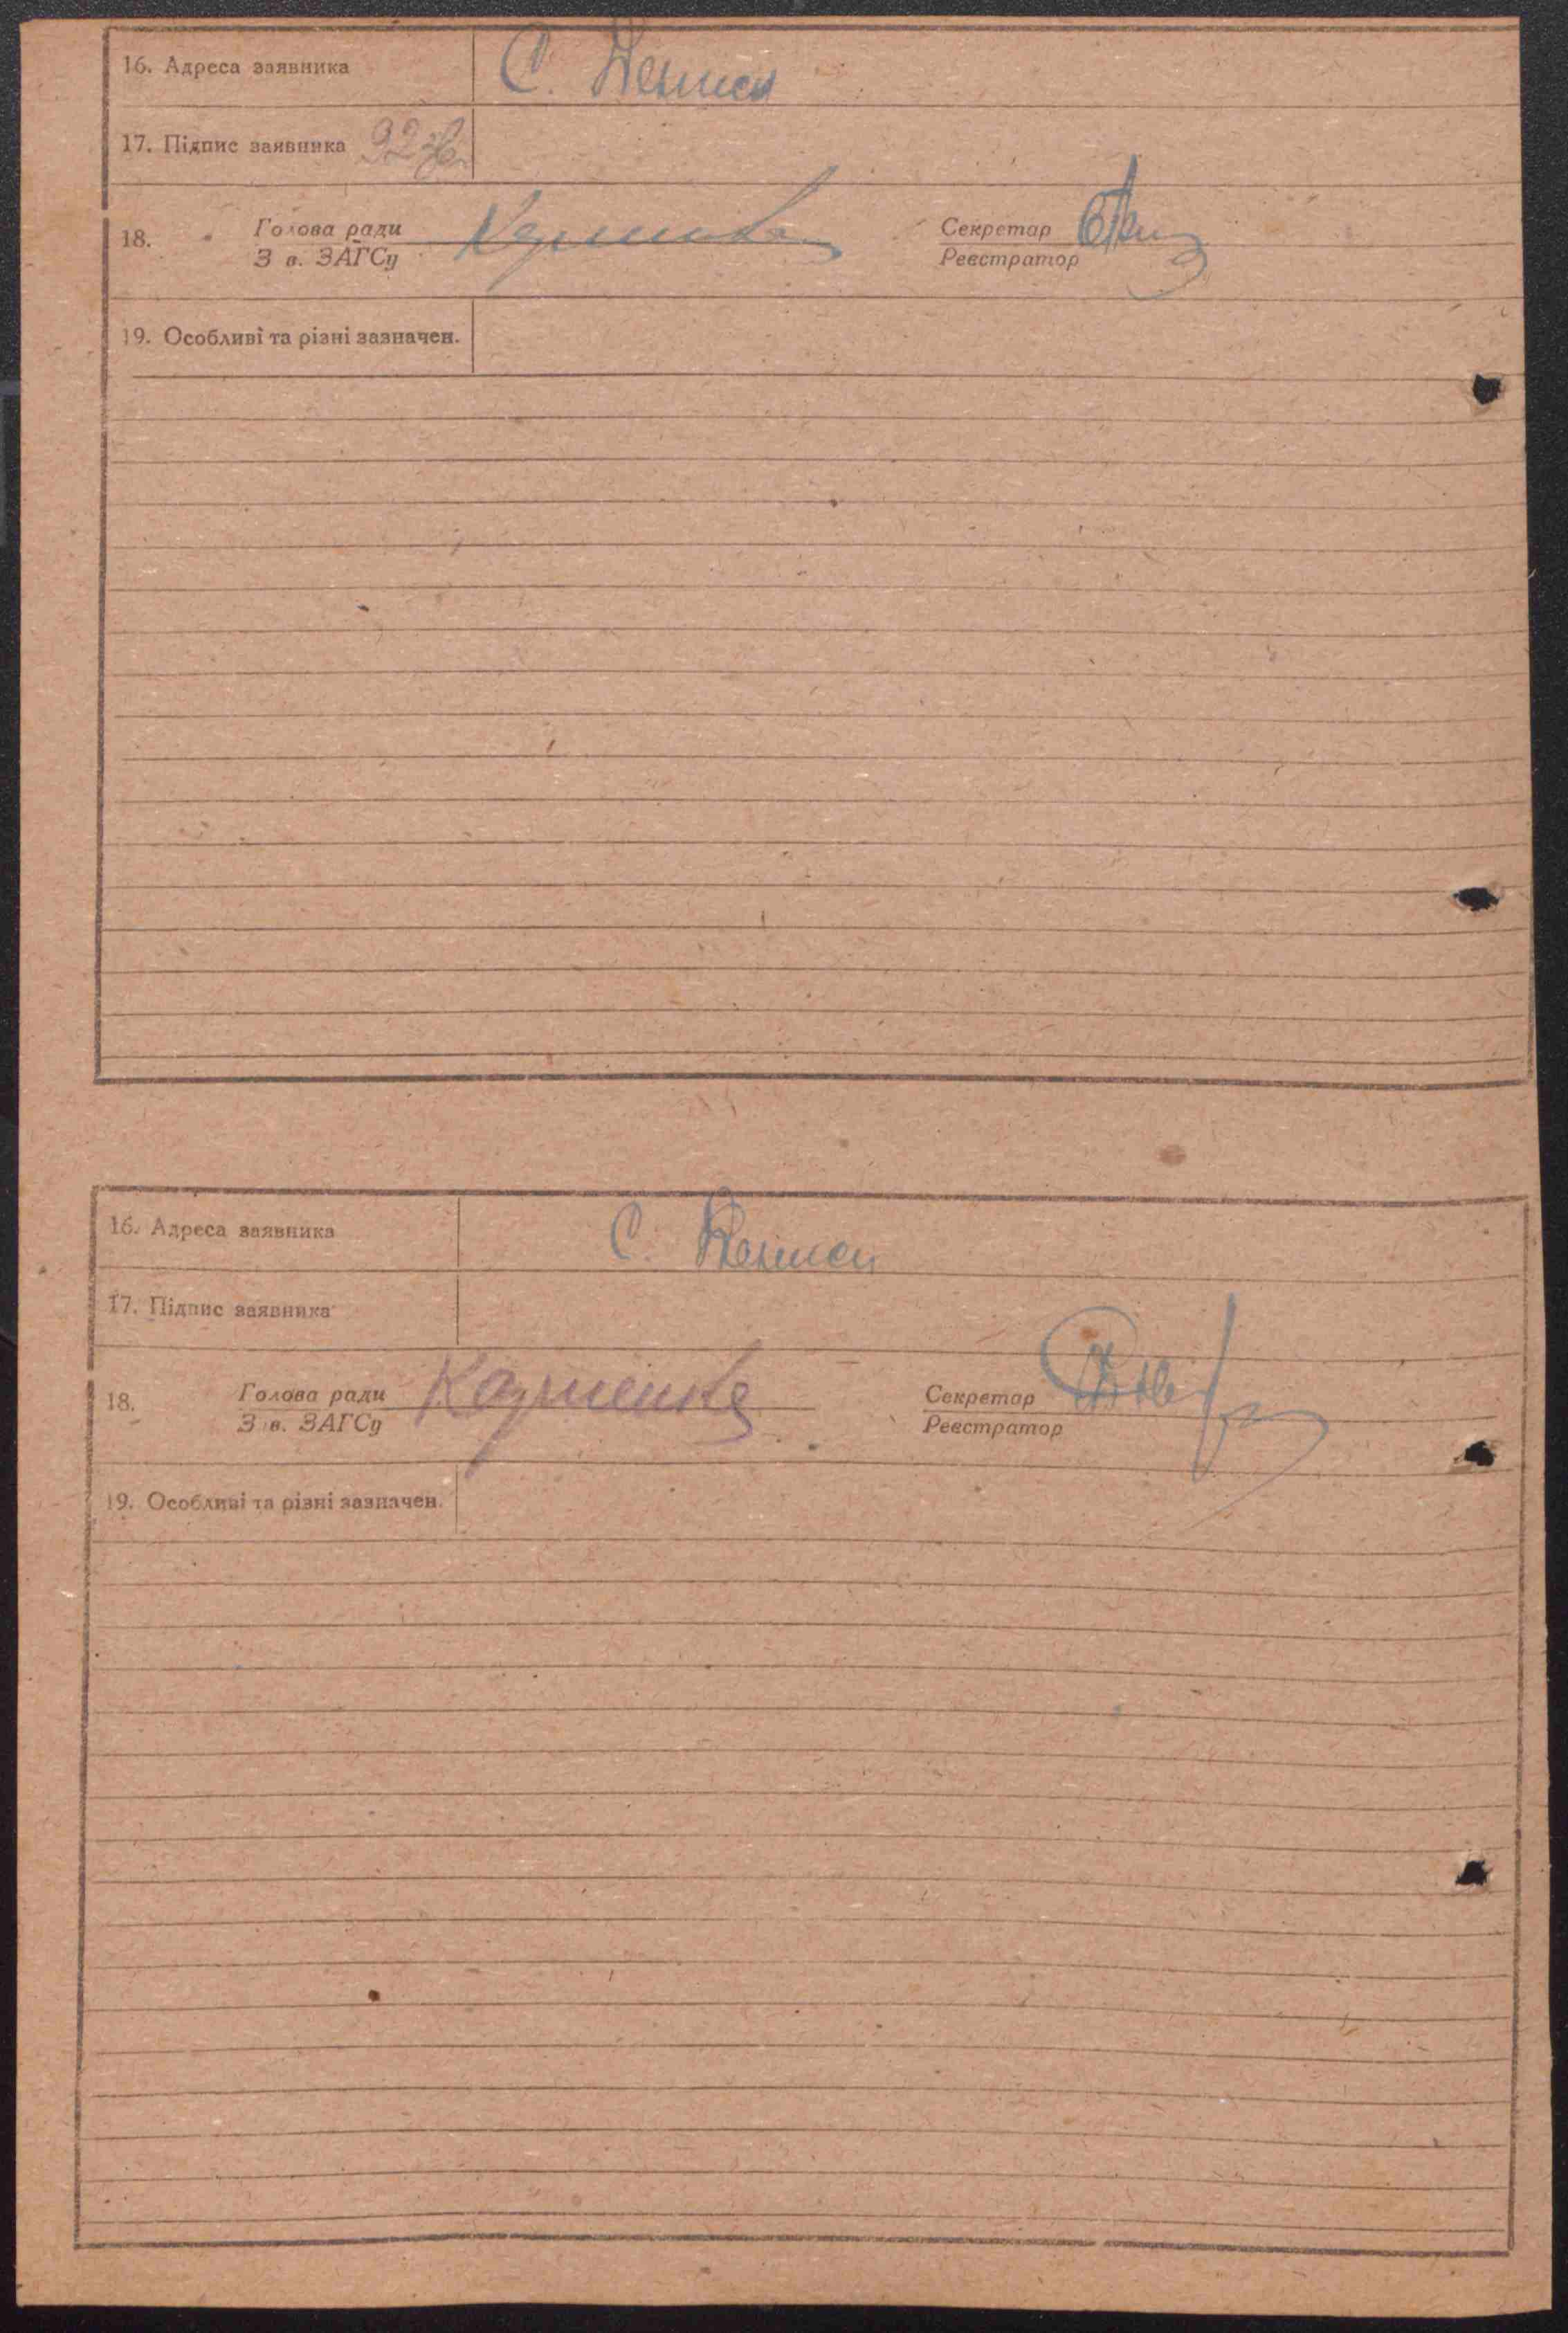 16. Адреса заявника С. Дениси
17. Підпис заявника 92
18. Голова ради Секретар
З в. ЗАГСу Реєстратор
19. Особливі та різні зазначен.
16. Адреса заявника С. Дениси
17. Підпис заявника
18. Голова ради Секретар
З в. ЗАГСу Реєстратор
19. Особливі та різні зазначен.